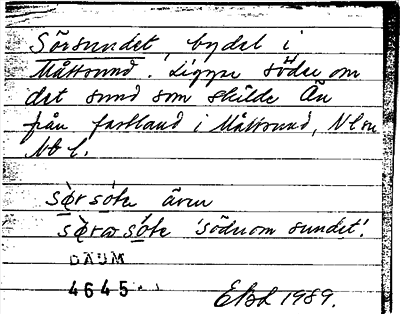 Sörsundet, bydel i
Måttsund. Ligger söder om
det sund som skilde Ön
från fastland i Måttsund, Nl sn
Nb l.
sø̀r só̱te även
sø̀rar só̱te 'söder om sundet'.
DAUM
4645
EBd 1989.